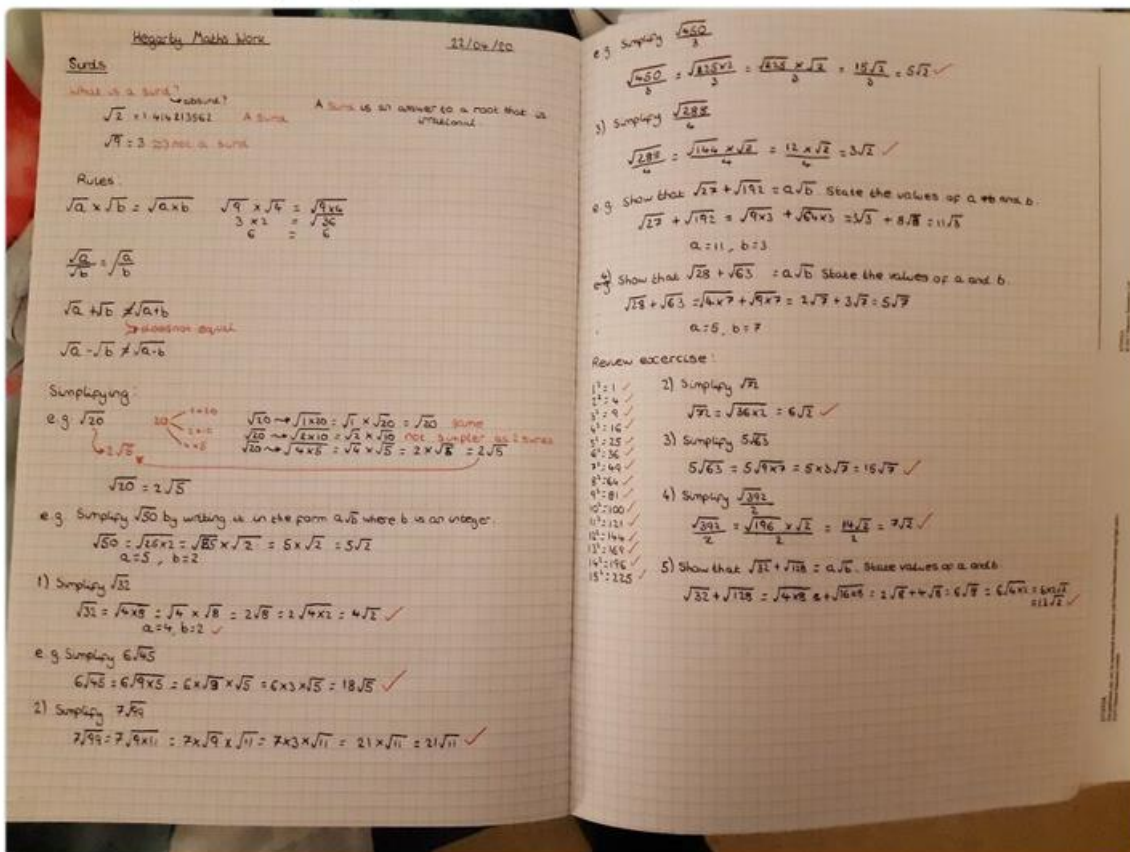 Hegarty Maths Work 22/04/20
Surds
What is a surd?
absurd?
√2 = 1.414213562 A Surd
√9 = 3 ⇒ not a surd
A surd is an answer to a root that is
irrational
Rules:
√a × √b = √(a×b) √9 × √4 = √(9×4)
3 × 2 = √36
6 = 6
√a/√b = √(a/b)
√a + √b ≠ √(a+b)
does not equal
√a - √b ≠ √(a-b)
Simplifying:
e.g. √20 20 1×20
2×10
4×5
2√5
√20 → √(1×20) = √1 × √20 = √20 same
√20 → √(2×10) = √2 × √10 not simpler as 2 surds
√20 → √(4×5) = √4 × √5 = 2 × √5 = 2√5
√20 = 2√5
e.g. Simplify √50 by writing it in the form a√b where b is an integer.
√50 = √(25×2) = √25 × √2 = 5 × √2 = 5√2
a=5, b=2
1) Simplify √32
√32 = √(4×8) = √4 × √8 = 2√8 = 2√(4×2) = 4√2 ✓
a=4, b=2 ✓
e.g. Simplify 6√45
6√45 = 6√(9×5) = 6×√9 × √5 = 6×3×√5 = 18√5 ✓
2) Simplify 7√99
7√99 = 7√(9×11) = 7×√9 × √11 = 7×3×√11 = 21×√11 = 21√11 ✓
e.g. Simplify √450/3
√450/3 = √(225×2)/3 = √225 × √2/3 = 15√2/3 = 5√2 ✓
3) Simplify √288/4
√288/4 = √144 × √2/4 = 12 × √2/4 = 3√2 ✓
e.g. Show that √27 + √192 = a√b. State the values of a and b.
√27 + √192 = √(9×3) + √(64×3) = 3√3 + 8√3 = 11√3
a=11, b=3
4) Show that √28 + √63 = a√b State the values of a and b.
√28 + √63 = √(4×7) + √(9×7) = 2√7 + 3√7 = 5√7
a=5, b=7
Review excercise:
1²=1 ✓
2²=4 ✓
3²=9 ✓
4²=16 ✓
5²=25 ✓
6²=36 ✓
7²=49 ✓
8²=64 ✓
9²=81 ✓
10²=100 ✓
11²=121 ✓
12²=144 ✓
13²=169 ✓
14²=196 ✓
15²=225 ✓
2) Simplify √72
√72 = √(36×2) = 6√2 ✓
3) Simplify 5√63
5√63 = 5√(9×7) = 5×3√7 = 15√7 ✓
4) Simplify √392/2
√392/2 = √196 × √2/2 = 14√2/2 = 7√2 ✓
5) Show that √32 + √128 = a√b. State values of a and b
√32 + √128 = √(4×8) + √(16×8) = 2√8 + 4√8 = 6√8 = 6√(4×2) = 6×2√2
= 12√2 ✓